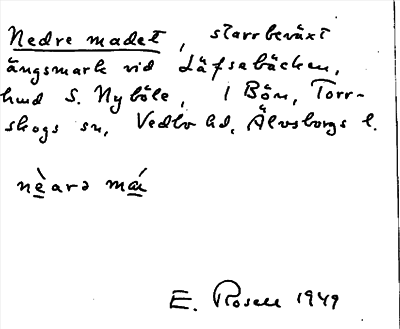 Nedre madet, starrbeväxt
ängsmark vid Läfsebäcken,
hmd S. Nyböle, i Bön, Torr-
skogs sn, Vedbo hd, Älvsborgs l.
nèarə mái
E. Rosell 1949